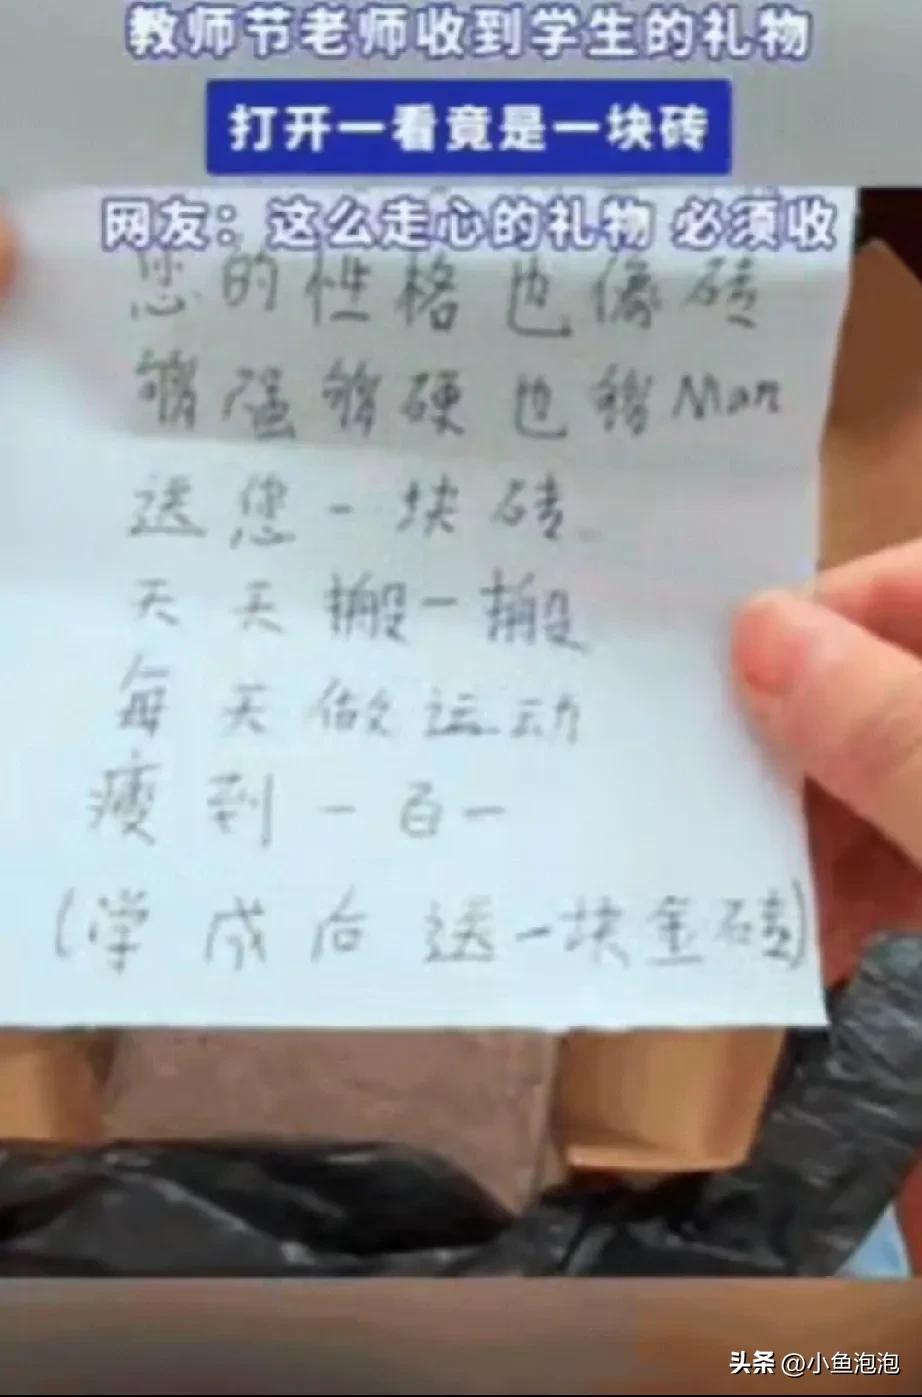 教师节老师收到学生的礼物
打开一看竟是一块砖
网友：这么走心的礼物 必须收
您的性格也像砖
够强够硬也够Man
送您一块砖
天天搬一搬
每天做运动
瘦到一百一
(学成后送一块金砖)
头条 @小鱼泡泡